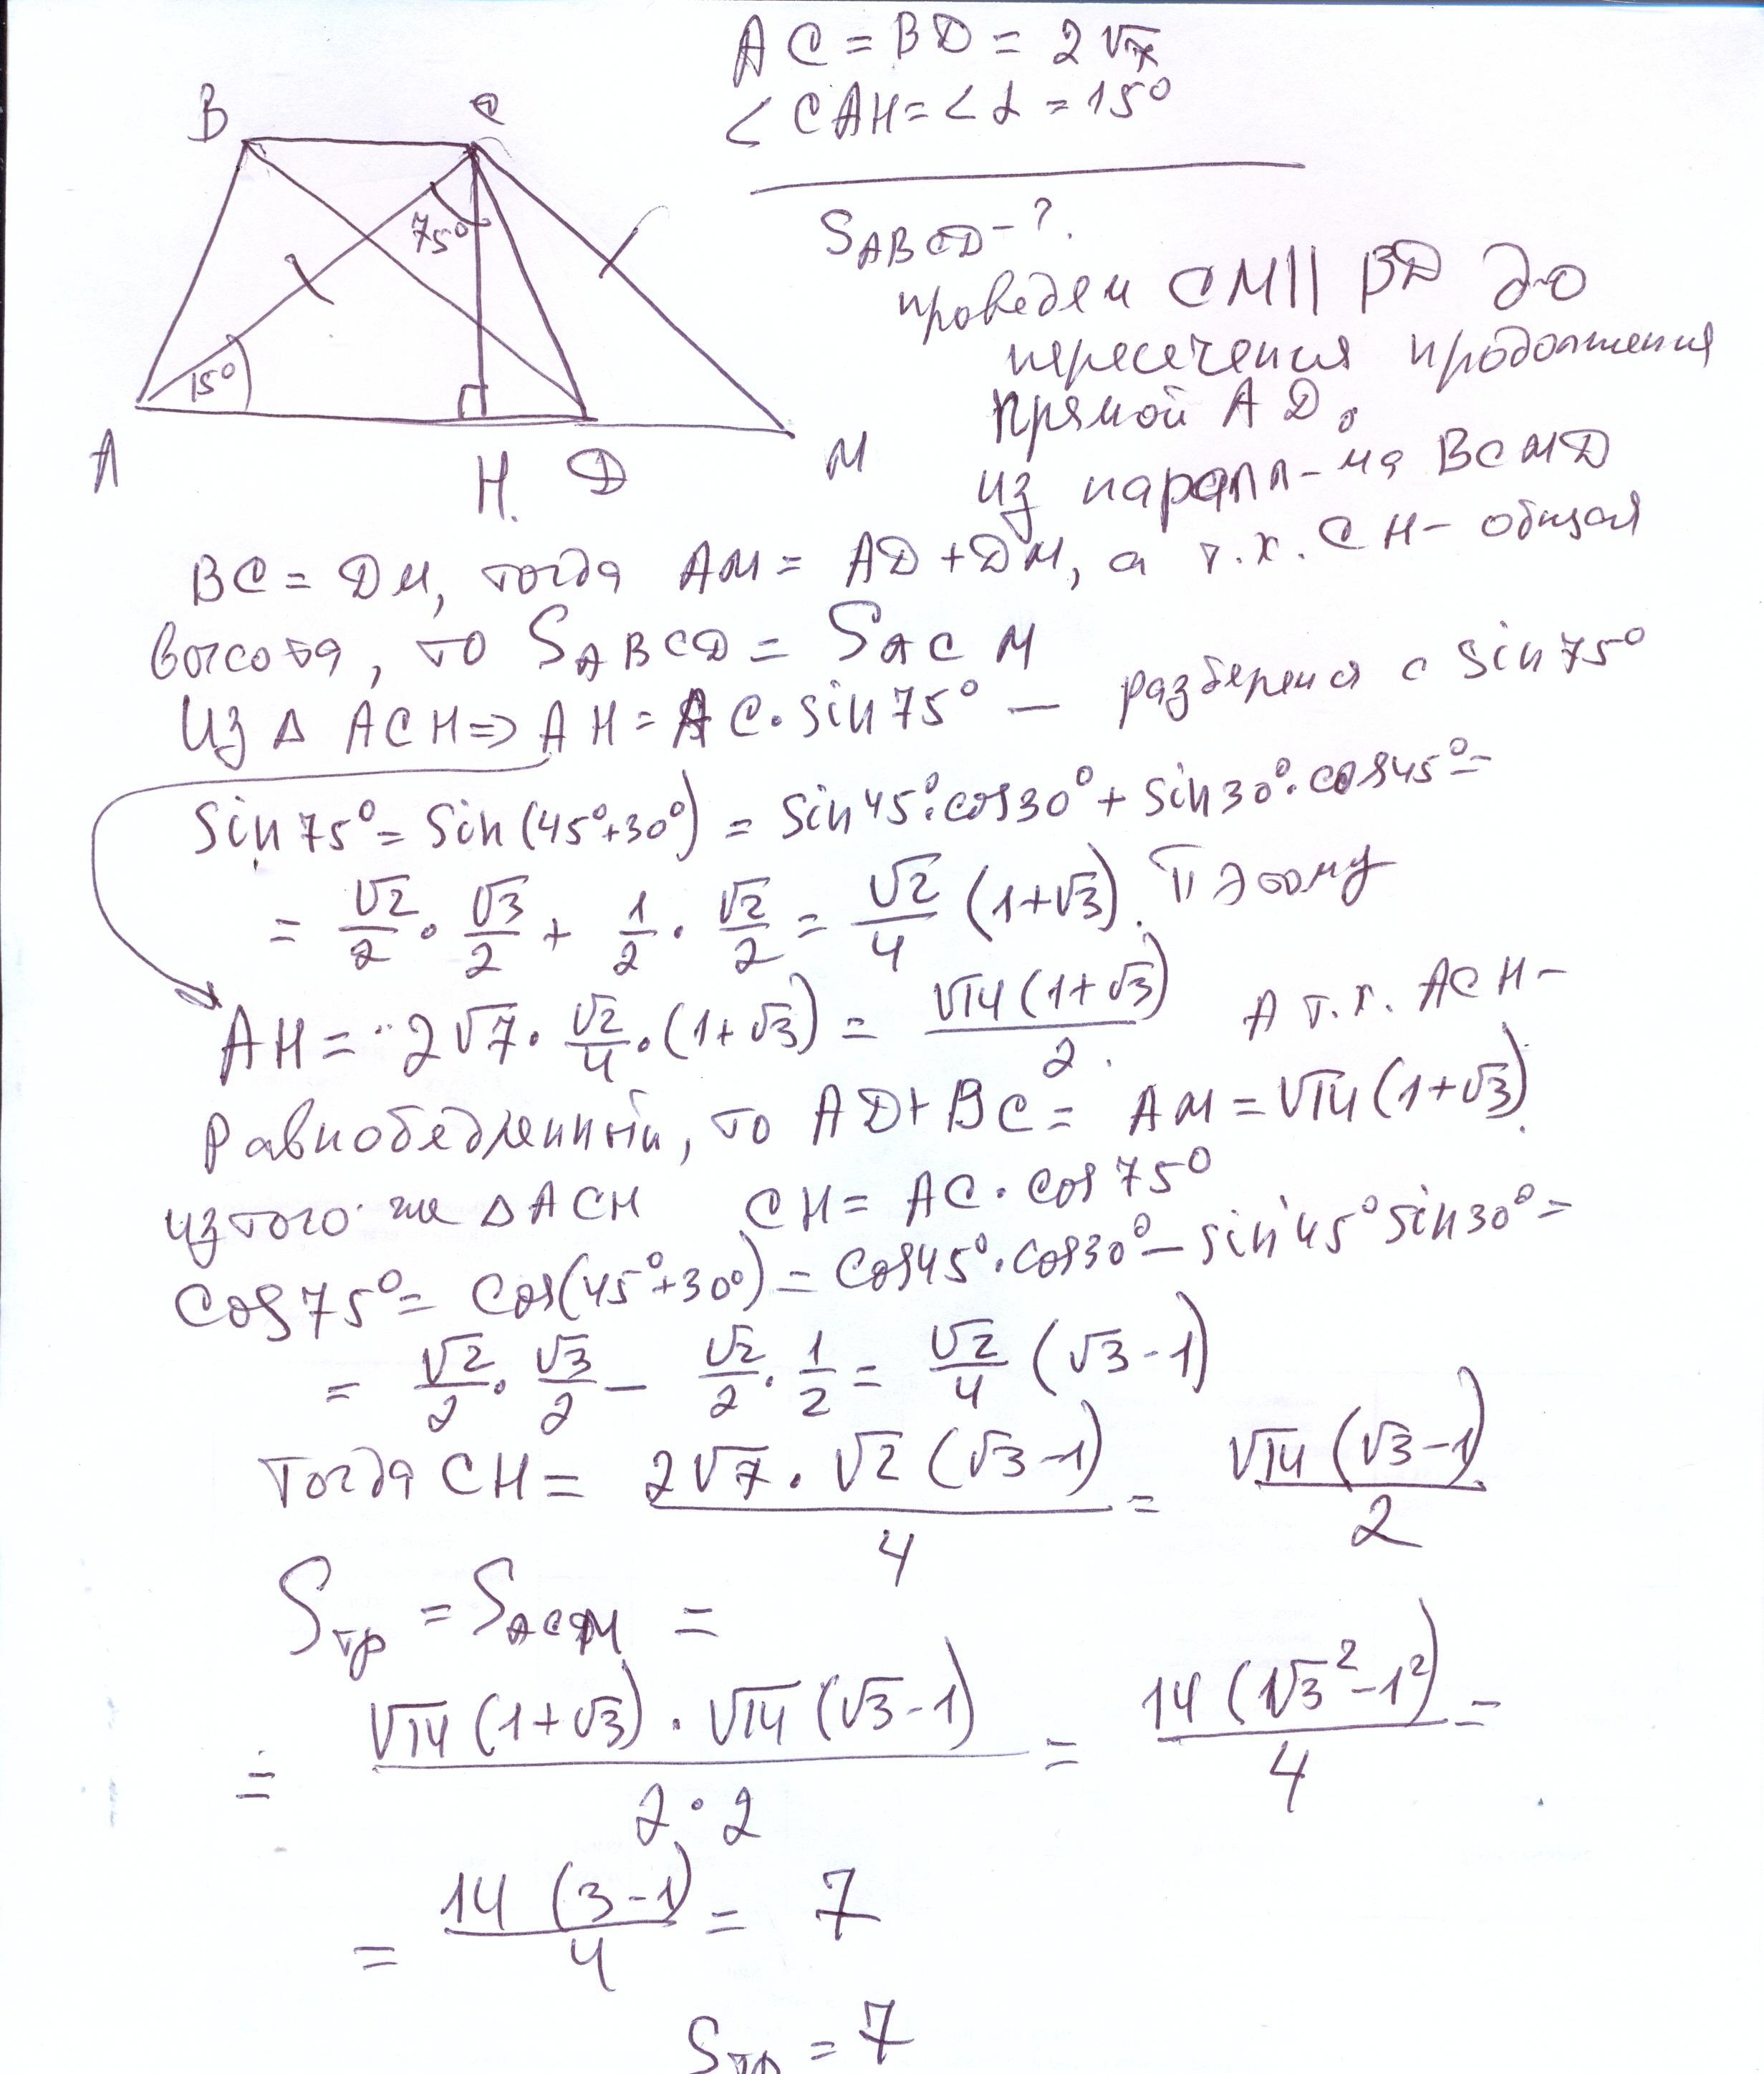 AC = BD = 2√7
∠CAH = ∠α = 15°
B
C
75°
15°
A
H.
D
M
S ABCD - ?
проведём CM || BD до
пересечения продолжения
прямой AD.
из паралл-ма BCMD
BC = DM, тогда AM = AD + DM, а т.к. CH - общая
высота, то S ABCD = S ACM
Из Δ ACH ⇒ AH = AC · sin75° — разберёмся с sin75°
Sin75° = Sin(45°+30°) = Sin45°·cos30° + sin30°·cos45° =
= √2/2 · √3/2 + 1/2 · √2/2 = √2/4 (1+√3). Поэтому
AH = 2√7 · √2/4 · (1+√3) = √14(1+√3)/2. А т.к. ACH -
равнобедренный, то AD + BC = AM = √14(1+√3).
из того же Δ ACH CH = AC · cos75°
Cos75° = Cos(45°+30°) = Cos45°·cos30° - sin45° sin30° =
= √2/2 · √3/2 - √2/2 · 1/2 = √2/4 (√3-1)
Тогда CH = 2√7 · √2 (√3-1)/4 = √14 (√3-1)/2
S тр = S ACM =
= √14 (1+√3) · √14 (√3-1)/2·2 = 14 (√3² - 1²)/4 =
= 14 (3-1)/4 = 7
S тр = 7